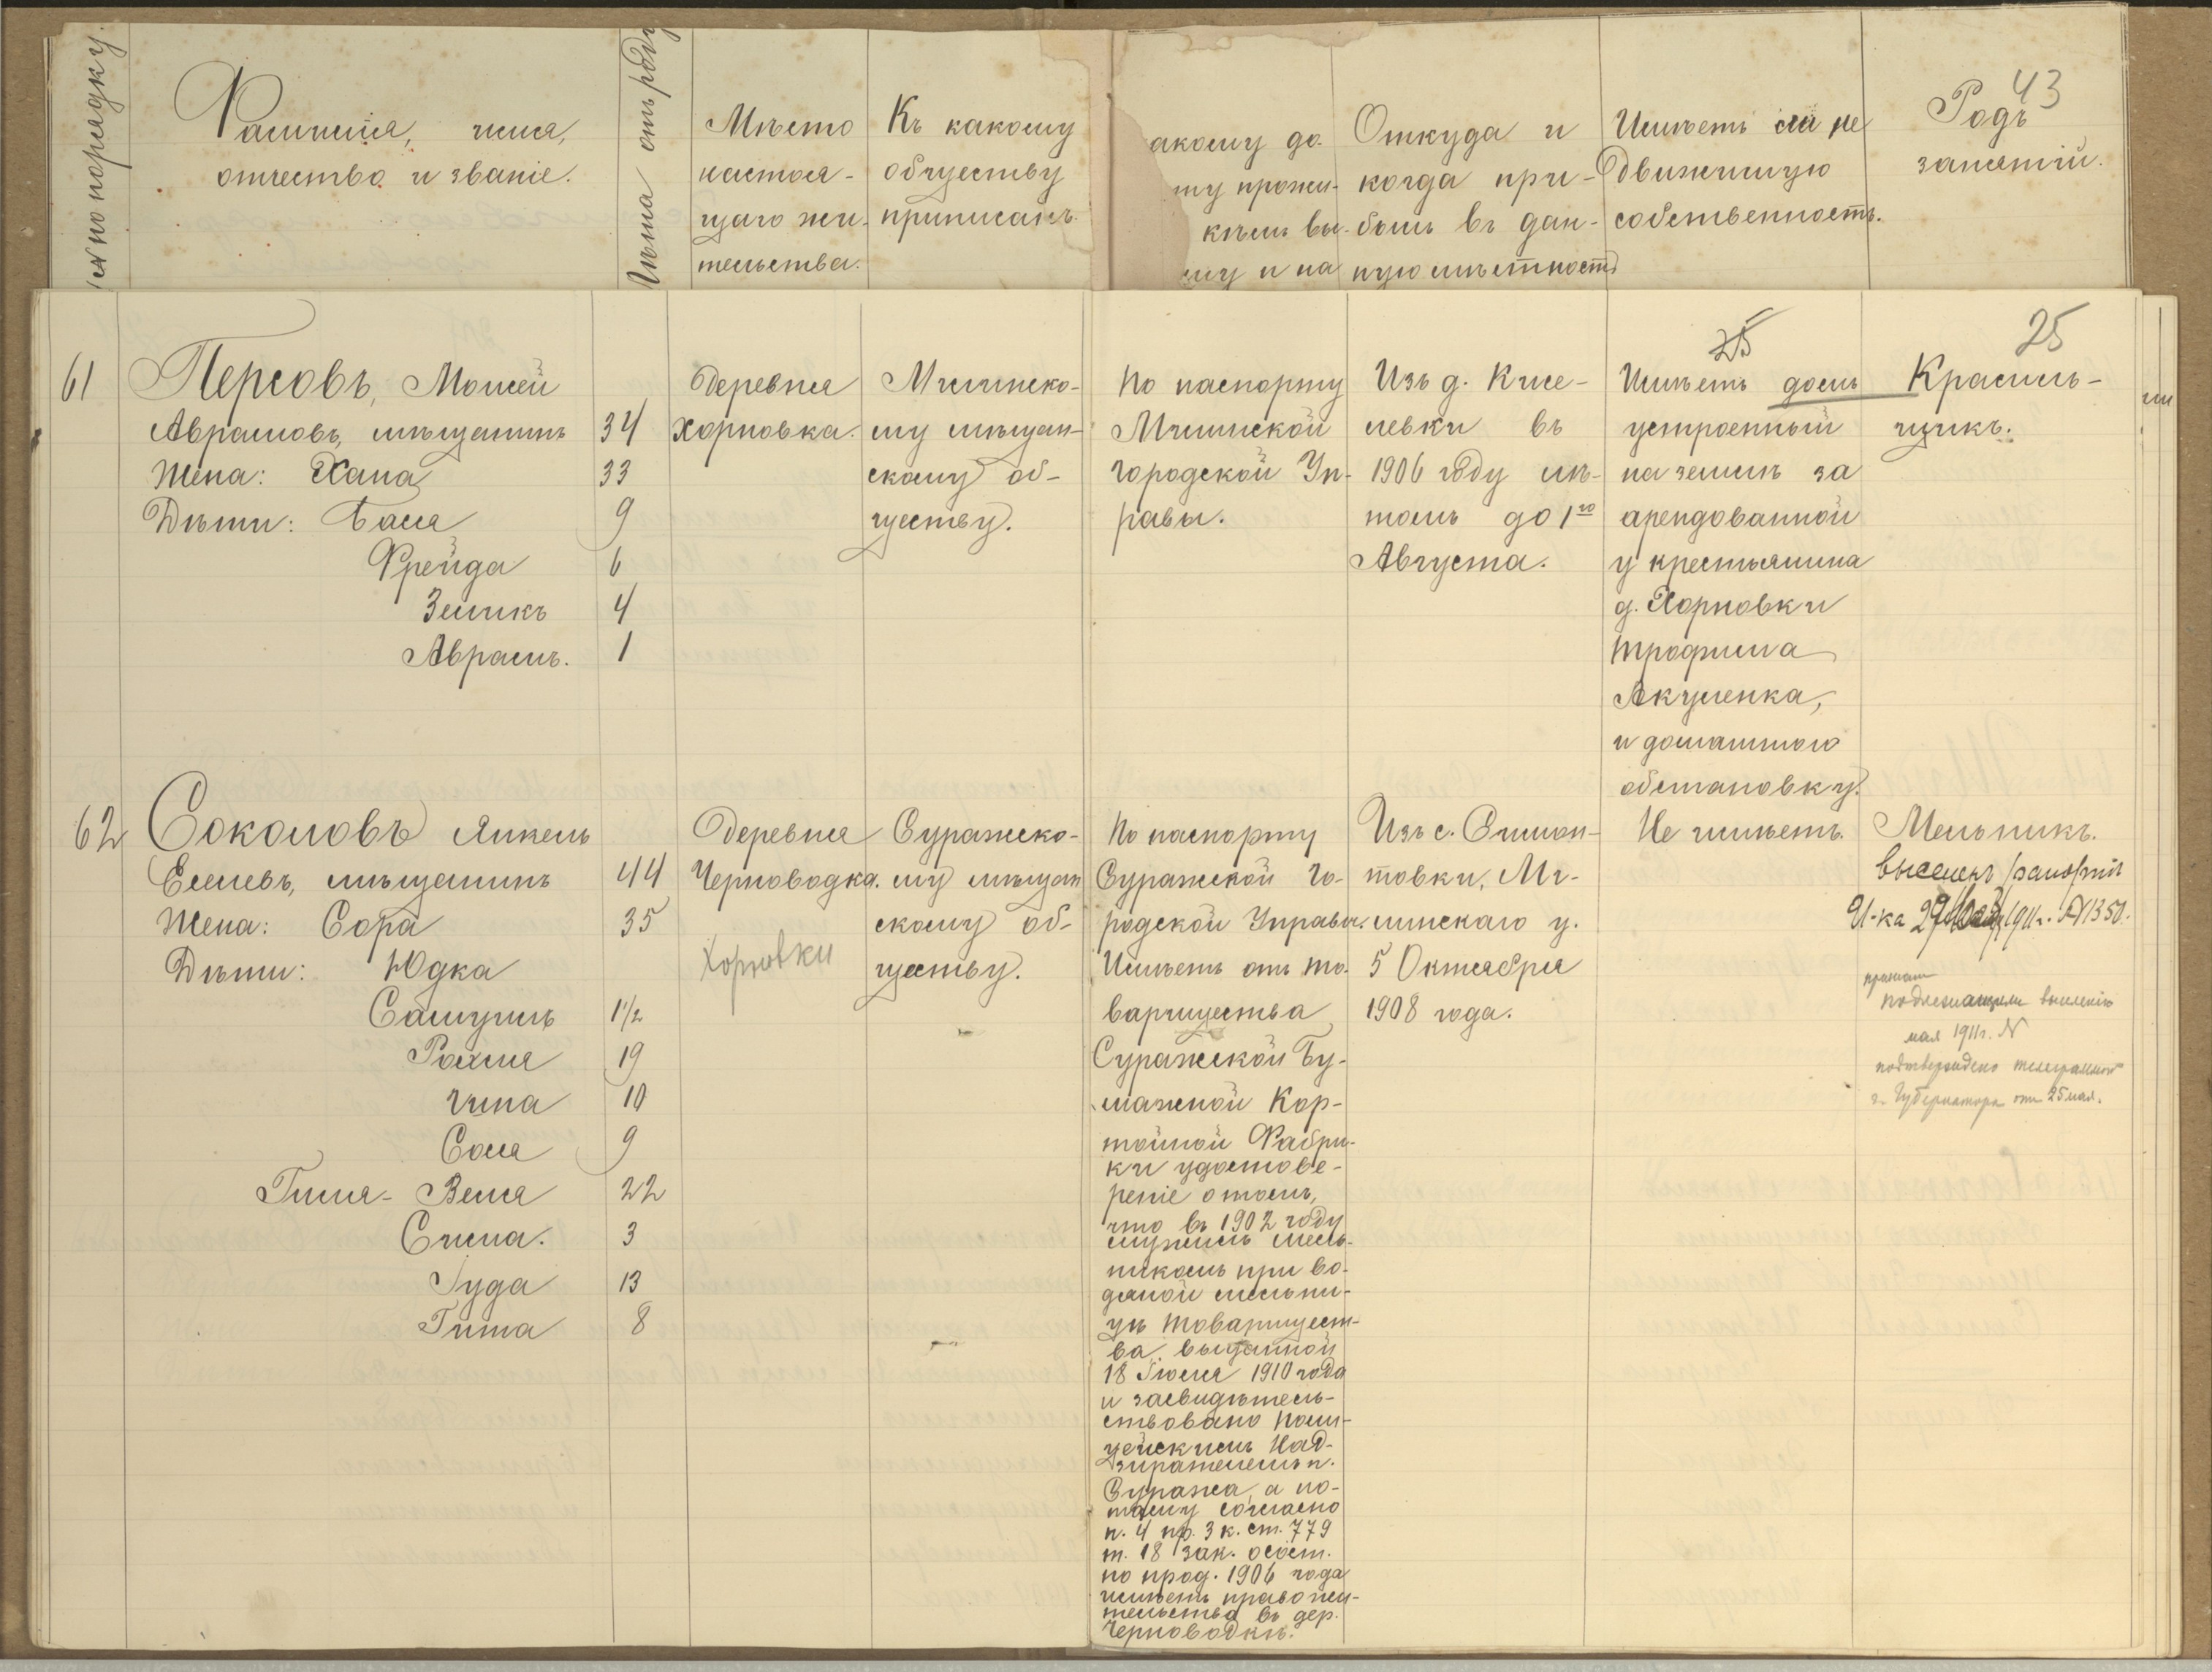 № по порядку.
Фамилія, имя,
отчество и званіе.
Лѣта отъ роду
Мѣсто
настоя-
щаго жи-
тельства.
Къ какому
обществу
приписанъ.
акому до-
ту прожи-
кѣмъ вы-
му и на
Откуда и
когда при-
былъ въ дан-
ную мѣстность
Имѣетъ ли не
движимую
собственность.
43
Родъ
занятій.
25
25
61
Перловъ, Мовшей
Абрамовъ, мѣщанинъ 34
Жена: Хана 33
Дѣти: Бася 9
Фрейда 6
Зеликъ 4
Абрамъ. 1
Деревня
Хорновка.
Мглинско-
му мѣщан-
скому об-
ществу.
По паспорту
Мглинской
Городской Уп-
равы.
Изъ д. Кисе-
левки въ
1906 году лѣ-
томъ до 1го
Августа.
Имѣетъ домъ
устроенный
на землѣ за
арендованной
у крестьянина
д. Хорновки
Трофима
Акуленка,
и домашнюю
обстановку.
Красиль-
щикъ.
62
Соколовъ Янкель
Елевъ, мѣщанинъ 44
Жена: Сора 35
Дѣти: Юдка
Самуилъ 1½
Рахля 19
Чипа 10
Соня 9
Гися-Веля 22
Сима. 3
Гуда 13
Гита 8
Деревня
Черноводка.
Хорновки
Суражско-
му мѣщан
скому об-
ществу.
По паспорту
Суражской Го-
родской Управы.
Имѣетъ отъ то-
варищества
Суражской Бу-
мажной Кар-
тонной Фабри-
ки удостове-
реніе о томъ,
что въ 1902 году
служилъ мель-
никомъ при во-
дяной мельни-
цѣ Товарищест-
ва, выданной
18 Іюля 1910 года
и засвидѣтель-
ствовано Поли-
цейскимъ Над-
зирателемъ п.
Суража, а по-
тому согласно
п. 4 пр. 3 к. ст. 779
т. 18 зак. о сост.
по прод. 1906 года
имѣетъ право жи-
тельства въ дер.
Черноводкѣ.
Изъ с. Симон-
товки, Мг-
линскаго у.
5 Октября
1908 года.
Не имѣетъ.
Мельникъ.
выселенъ /рапортъ
У-ка 29 1911 г. № 1350.
подлежащимъ выселенію
мая 1911 г. №
подтверждено телеграммой
г. Губернатора отъ 25 мая.